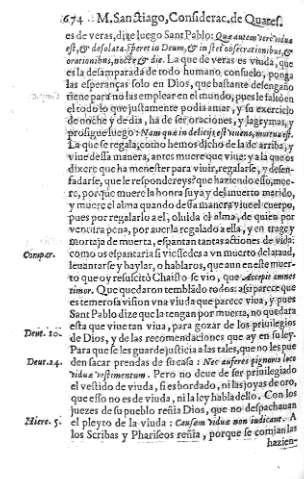 674 M. Sanctiago, Considerac. de Quares.
es de veras, dize luego Sant Pablo: Quæ autem verè vidua
est, & desolata. Speret in Deum, & instet obsecrationibus, &
orationibus, nocte & die. La que de veras es viuda, que
es la desamparada de todo humano consuelo, ponga
las esperanças solo en Dios, que bastante desengaño
tiene para no las emplear en el mundo, pues le faltò en
el todo lo que justamente podia amar, y su exercicio
de noche y de dia, ha de ser oraciones, y lagrymas, y
prosigue luego: Nam quæ in delicijs est viuens, mortua est.
La que se regala, como hemos dicho de la de arriba, y
viue dessa manera, antes muere que viue: y a la que os
dixere que ha menester para viuir, regalarse, y desen-
fadarse, que le respondereys? que haziendo esso, mue-
re, porque muere la honra suya y del muerto marido,
y muere el alma quando dessa manera viue el cuerpo,
pues por regalarlo a el, oluida el alma, de quien por
ventura pena, por auerla regalado a ella, y en trage y
mortaja de muerta, espantan tantas actiones de vida:
Compar. como os espantaria si viessedes a vn muerto del ataud,
leuantarse y baylar, o hablaros, que aun en esse muer-
to que oy resuscitò Christo se vio, que Accepit omnes
timor. Que quedaron temblãdo todos: assi parece que
es temerosa vision vna viuda que parece viua, y pues
Sant Pablo dize que la tengan por muerta, no quedara
Deut. 10. esta que viue tan viua, para gozar de los priuilegios
de Dios, y de las recomendaciones que ay en su ley.
Para que se les guarde justicia a las tales, que no les pue
Deut. 24. den sacar prendas de su casa: Nec auferes pignoris loco
viduæ vestimentum. Pero no deue de ser priuilegiado
el vestido de viuda, si es bordado, ni las joyas de oro,
que esso no es de viuda, ni la ley habla dello. Con los
juezes de su pueblo reñia Dios, que no despachauan
Hiere. 5. el pleyto de la viuda: Causam viduæ non iudicant. A
los Scribas y Phariseos reñia, porque se comian las
hazien-